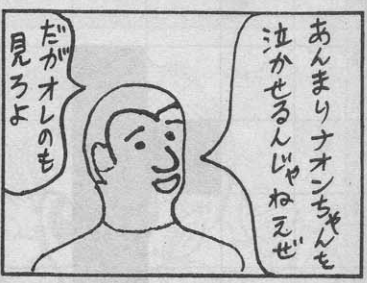 あんまりナオンちゃんを
泣かせるんじゃねえぜ
だがオレのも
見ろよ